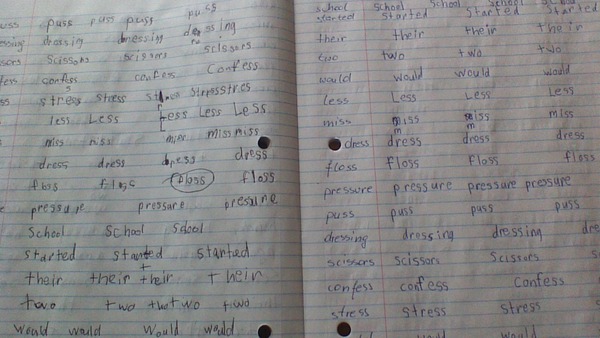 uss puss puss puss puss
essing dressing dressing dressing
sors scissors scissors scissors
fess confess confess Confess
ss stress stress stress
less Less Less Less Less
miss miss miss miss miss
dress dress dress dress
floss floss floss
pressure pressure pressure
School School School
started started started
their their their their
two two two two
would would Would would
school school School School School
started started Started Started
their their their their
two two two two
would would would would
Less Less Less Less
miss miss miss miss
dress dress dress dress
floss floss Floss floss
pressure pressure pressure pressure
puss puss puss puss
dressing dressing dressing dre
scissors scissors Scissors
confess confess Confess
stress stress stress
would